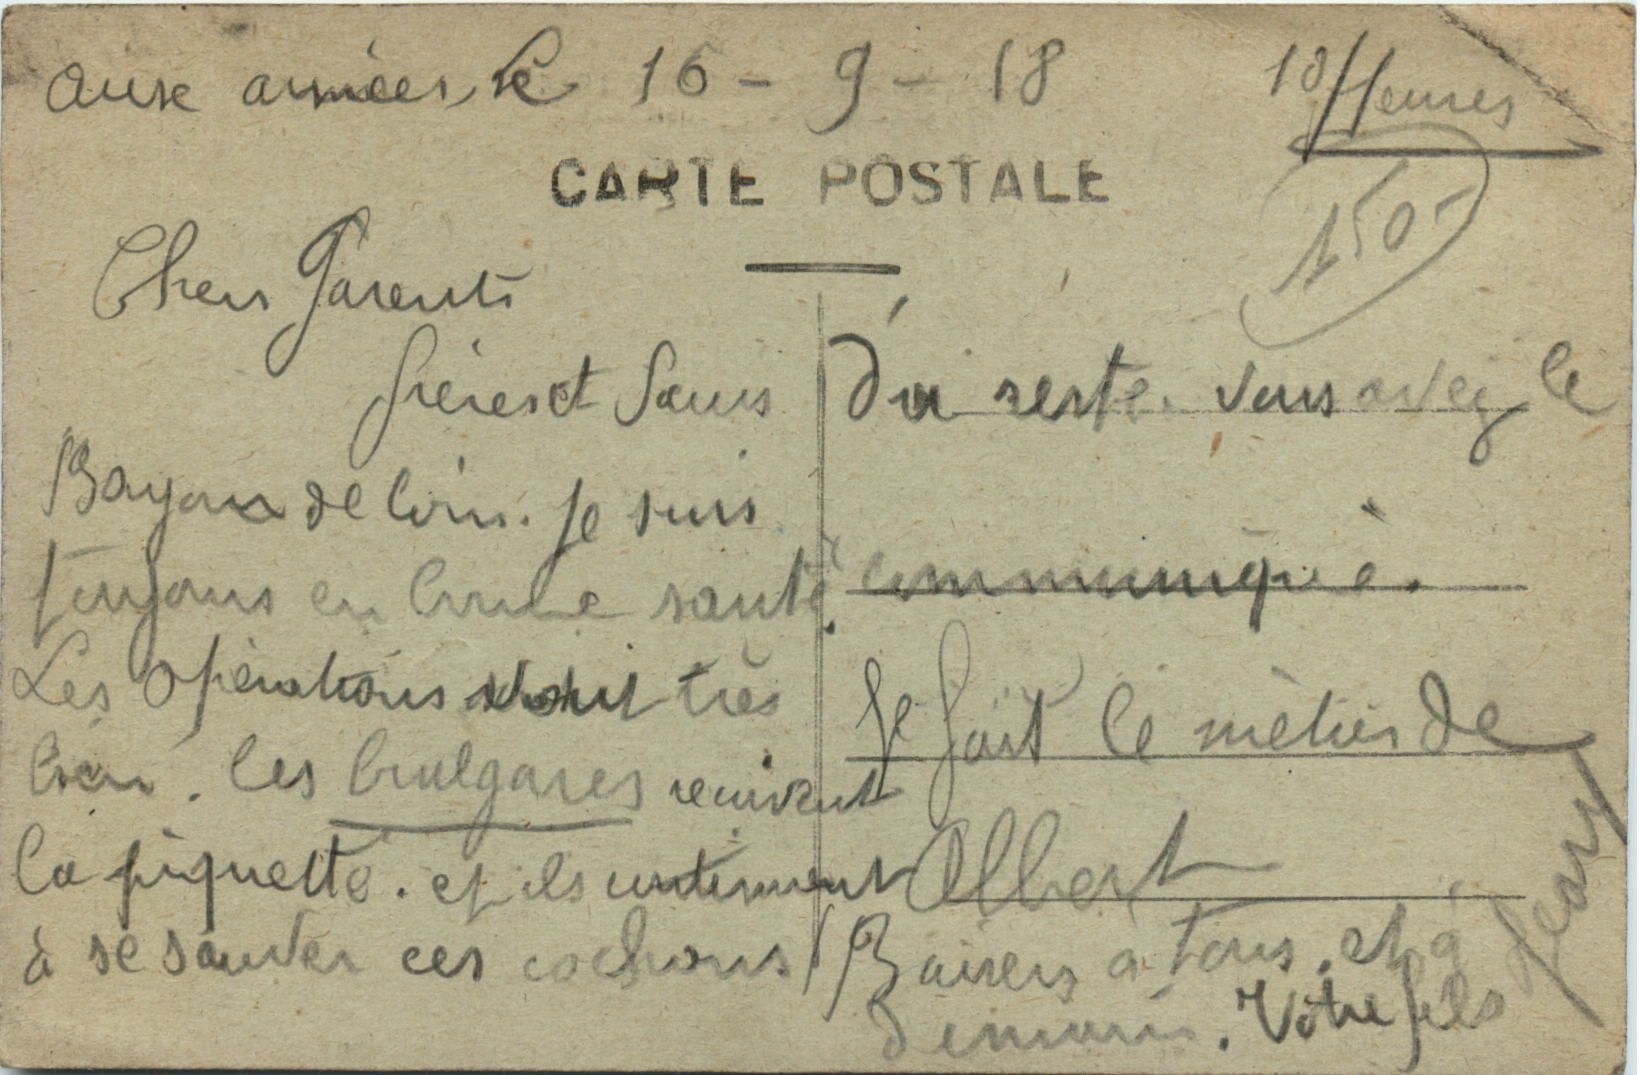 aux armées, le 16 - 9 - 18
18 Heures
CARTE POSTALE
150-
Chers Parents
frères et Sœurs
Bayoux de loin. Je suis
toujours en bonne santé.
Les opérations vont très
bien. les bulgares reçoivent
la piquette. et ils continuent
à se sauver ces cochons
d'a reste. vous avez le
communiqué.
Je fait le métier de
Albert
Baisers a tous. et à
demain. Votre fils
Jean